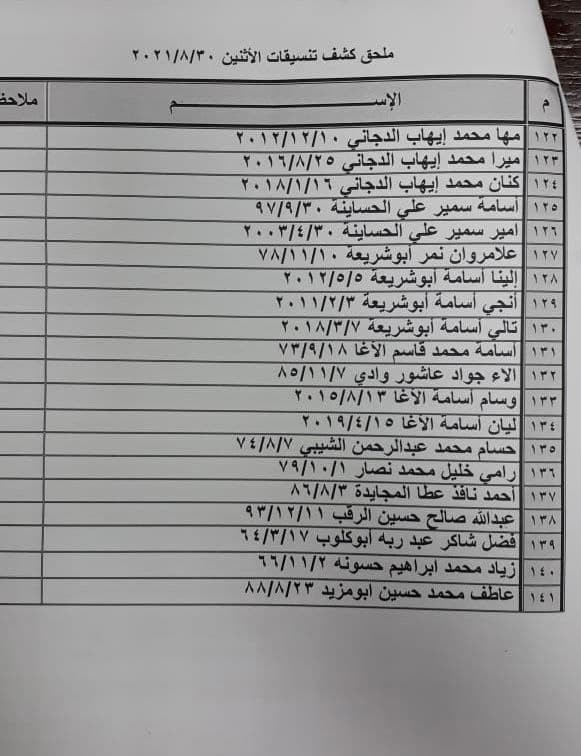 ملحق كشف تنسيقات الأثنين ٢٠٢١/٨/٣٠
م الإســـــــــم
١٢٢ مها محمد إيهاب الدجاني ٢٠١٢/١٢/١٠
١٢٣ ميرا محمد إيهاب الدجاني ٢٠١٦/٨/٢٥
١٢٤ كنان محمد إيهاب الدجاني ٢٠١٨/١/١٦
١٢٥ أسامة سمير علي الحساينة ٩٧/٩/٣٠
١٢٦ امير سمير علي الحساينة ٢٠٠٣/٤/٣٠
١٢٧ علامروان نمر أبوشريعة ٧٨/١١/١٠
١٢٨ إلينا أسامة أبوشريعة ٢٠١٢/٥/٥
١٢٩ أنجي أسامة أبوشريعة ٢٠١١/٢/٣
١٣٠ تالي أسامة أبوشريعة ٢٠١٨/٣/٧
١٣١ أسامة محمد قاسم الأغا ٧٣/٩/١٨
١٣٢ الاء جواد عاشور وادي ٨٥/١١/٧
١٣٣ وسام أسامة الأغا ٢٠١٥/٨/١٣
١٣٤ ليان أسامة الأغا ٢٠١٩/٤/١٥
١٣٥ حسام محمد عبدالرحمن الشيبي ٧٤/٨/٧
١٣٦ رامي خليل محمد نصار ٧٩/١٠/١
١٣٧ أحمد نافذ عطا المجايدة ٨٦/٨/٣
١٣٨ عبدالله صالح حسين الرقب ٩٣/١٢/١١
١٣٩ فضل شاكر عبد ربه أبوكلوب ٦٤/٣/١٧
١٤٠ زياد محمد ابراهيم حسونه ٦٦/١١/٢
١٤١ عاطف محمد حسين ابومزيد ٨٨/٨/٢٣